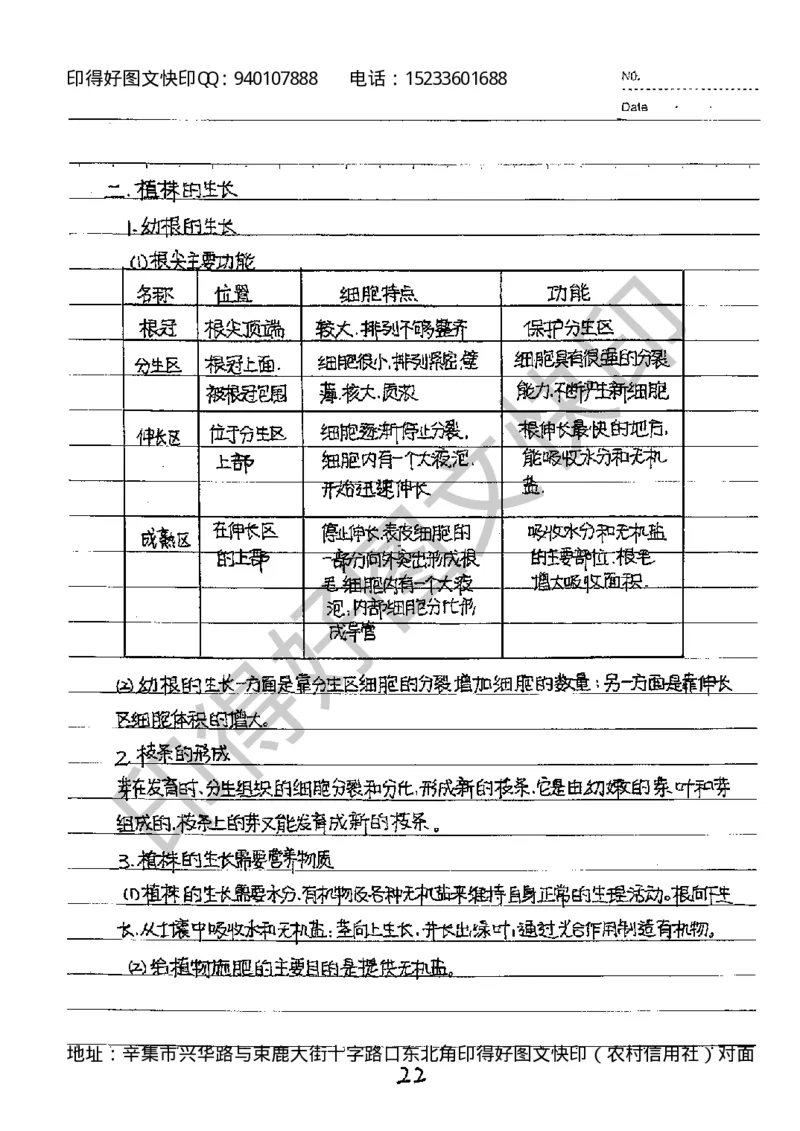 印得好图文快印QQ：940107888 电话：15233601688
NO.
Date
二.植株的生长
1.幼根的生长
(1)根尖主要功能
名称 位置 细胞特点 功能
根冠 根尖顶端 较大.排列不够整齐 保护分生区
分生区 根冠上面. 细胞很小,排列紧密,壁 细胞具有很强的分裂
被根冠包围 薄.核大.质浓 能力.不断产生新细胞
伸长区 位于分生区 细胞逐渐停止分裂, 根伸长最快的地方,
上部 细胞内有一个大液泡. 能吸收水分和无机
开始迅速伸长 盐.
成熟区 在伸长区 停止伸长.表皮细胞的 吸收水分和无机盐
的上部 一部分向外突出形成根 的主要部位.根毛
毛.细胞内有一个大液 增大吸收面积.
泡.内部细胞分化形
成导管
(2)幼根的生长一方面是靠分生区细胞的分裂增加细胞的数量；另一方面是靠伸长
区细胞体积的增大。
2.枝条的形成
芽在发育时.分生组织的细胞分裂和分化,形成新的枝条.它是由幼嫩的茎.叶和芽
组成的,枝条上的芽又能发育成新的枝条。
3.植株的生长需要营养物质
(1)植株的生长需要水分.有机物及各种无机盐来维持自身正常的生理活动。根向下生
长.从土壤中吸收水和无机盐;茎向上生长.并长出绿叶,通过光合作用制造有机物。
(2)给植物施肥的主要目的是提供无机盐。
地址：辛集市兴华路与束鹿大街十字路口东北角印得好图文快印（农村信用社）对面
22
印得好图文快印